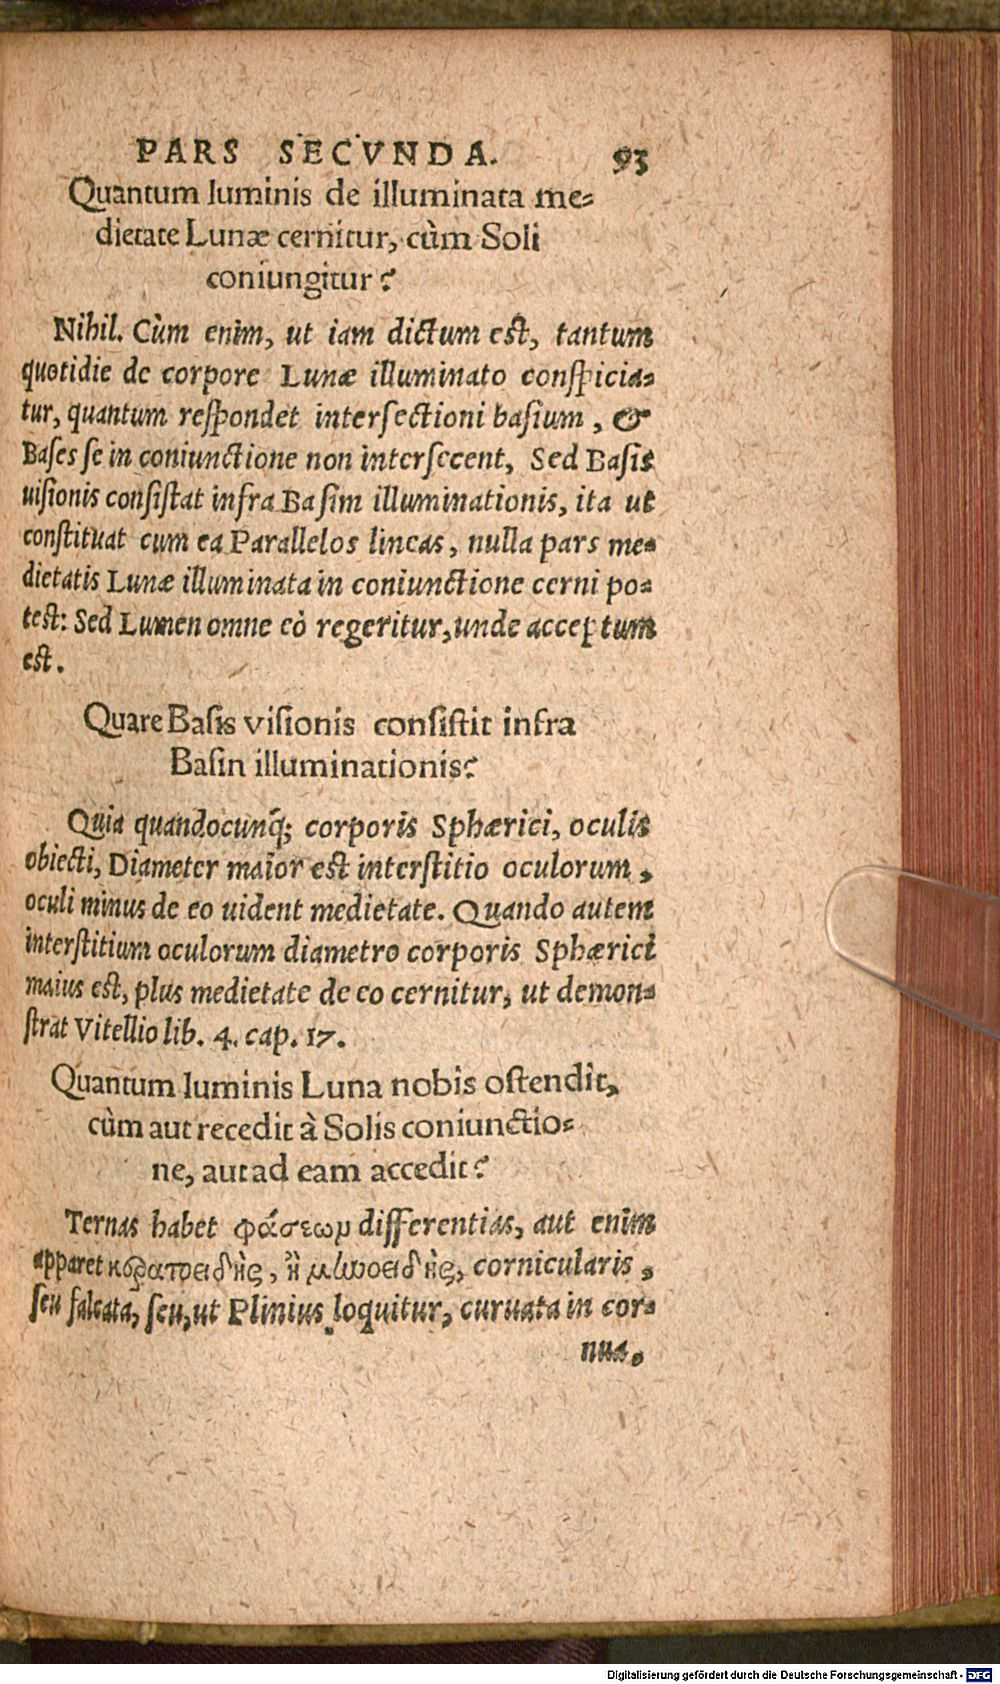 PARS SECVNDA. 93
Quantum luminis de illuminata me-
dietate Lunæ cernitur, cùm Soli
coniungitur?
Nihil. Cùm enim, ut iam dictum est, tantum
quotidie de corpore Lunæ illuminato conspicia-
tur, quantum respondet intersectioni basium, &
Bases se in coniunctione non intersecent, Sed Basis
uisionis consistat infra Basim illuminationis, ita ut
constituat cum ea Parallelos lineas, nulla pars me-
dietatis Lunæ illuminata in coniunctione cerni po-
test: Sed Lumen omne eò regeritur, unde acceptum
est.
Quare Basis visionis consistit infra
Basin illuminationis?
Quia quandocunq; corporis Sphærici, oculis
obiecti, Diameter maior est interstitio oculorum,
oculi minus de eo uident medietate. Quando autem
interstitium oculorum diametro corporis Sphærici
maius est, plus medietate de eo cernitur, ut demon-
strat Vitellio lib. 4. cap. 17.
Quantum luminis Luna nobis ostendit,
cùm aut recedit à Solis coniunctio-
ne, aut ad eam accedit?
Ternas habet φάσεωμ differentias, aut enim
apparet κερατοειδὴς, ἢ μηνοειδὴς, cornicularis,
seu falcata, seu, ut Plinius loquitur, curuata in cor-
nua.
Digitalisierung gefördert durch die Deutsche Forschungsgemeinschaft - DFG